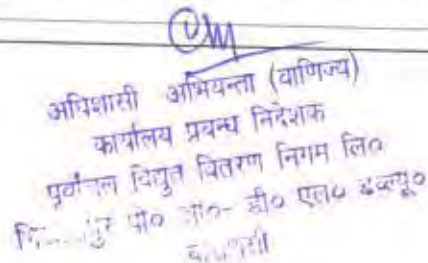 अधिशासी अभियन्ता (वाणिज्य)
कार्यालय प्रबन्ध निदेशक
पूर्वांचल विद्युत वितरण निगम लि०
पो० डी० एल० डब्ल्यू०